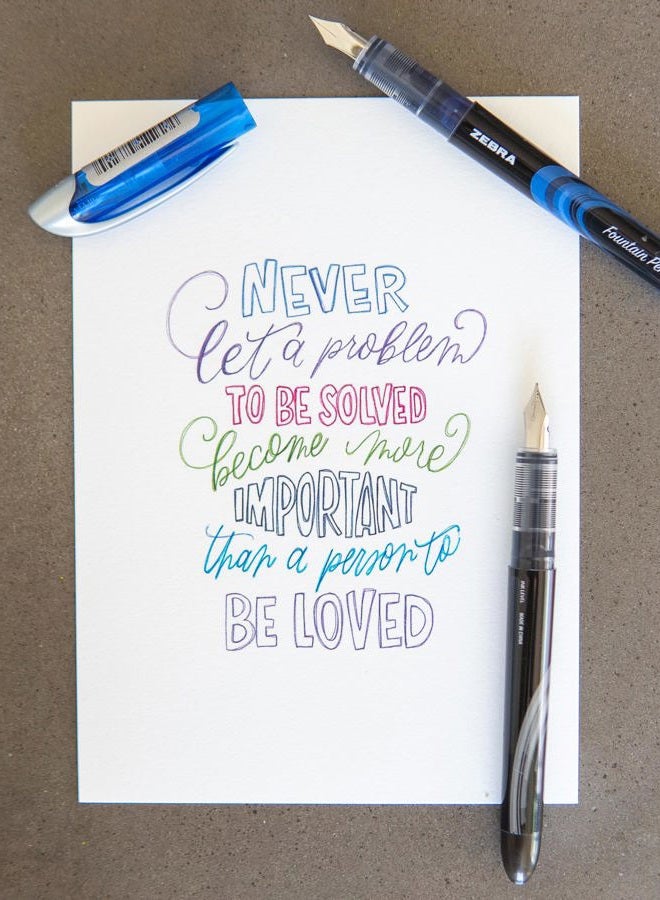 ZEBRA
Fountain Pe
NEVER
let a problem
TO BE SOLVED
become more
IMPORTANT
than a person to
BE LOVED
INK LEVEL
MADE IN CHINA